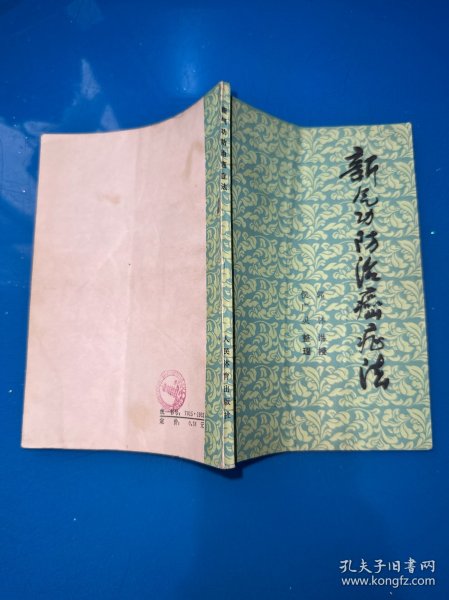 新气功防治癌症法
传授
整理
新气功防治癌症法
人民体育出版社
统一书号：7015·
定价：
元
孔夫子旧书网
www.kongfz.com